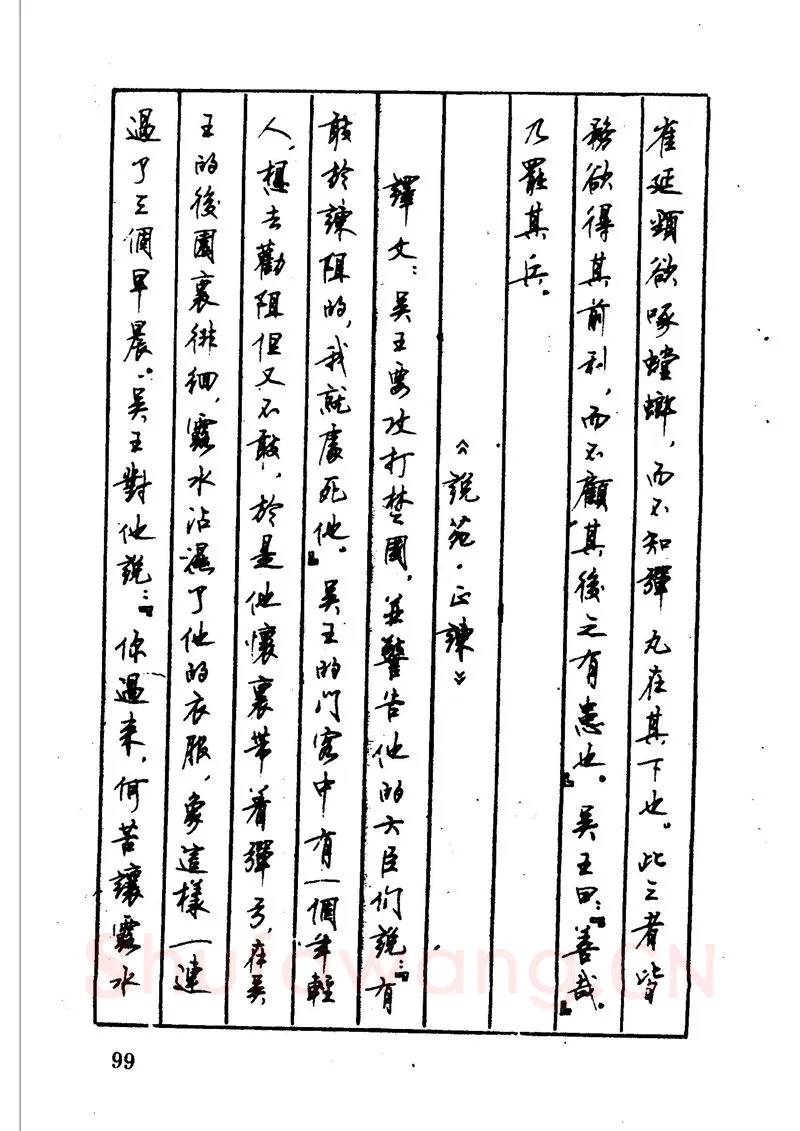 雀延頸欲啄螳螂，而不知彈丸在其下也。此三者皆
務欲得其前利，而不顧其後之有患也。』吳王曰：『善哉。』
乃罷其兵。
《說苑·正諫》
譯文：吳王要攻打楚國，並警告他的大臣们說：『有
敢於諫阻的，我就處死他。』吳王的门客中有一個年輕
人，想去勸阻但又不敢，於是他懷裏带着彈弓，在吳
王的後園裏徘徊，露水沾濕了他的衣服，象這樣一連
過了三個早晨。吳王對他說：『你過来，何苦讓露水
99
Shufawang.CN